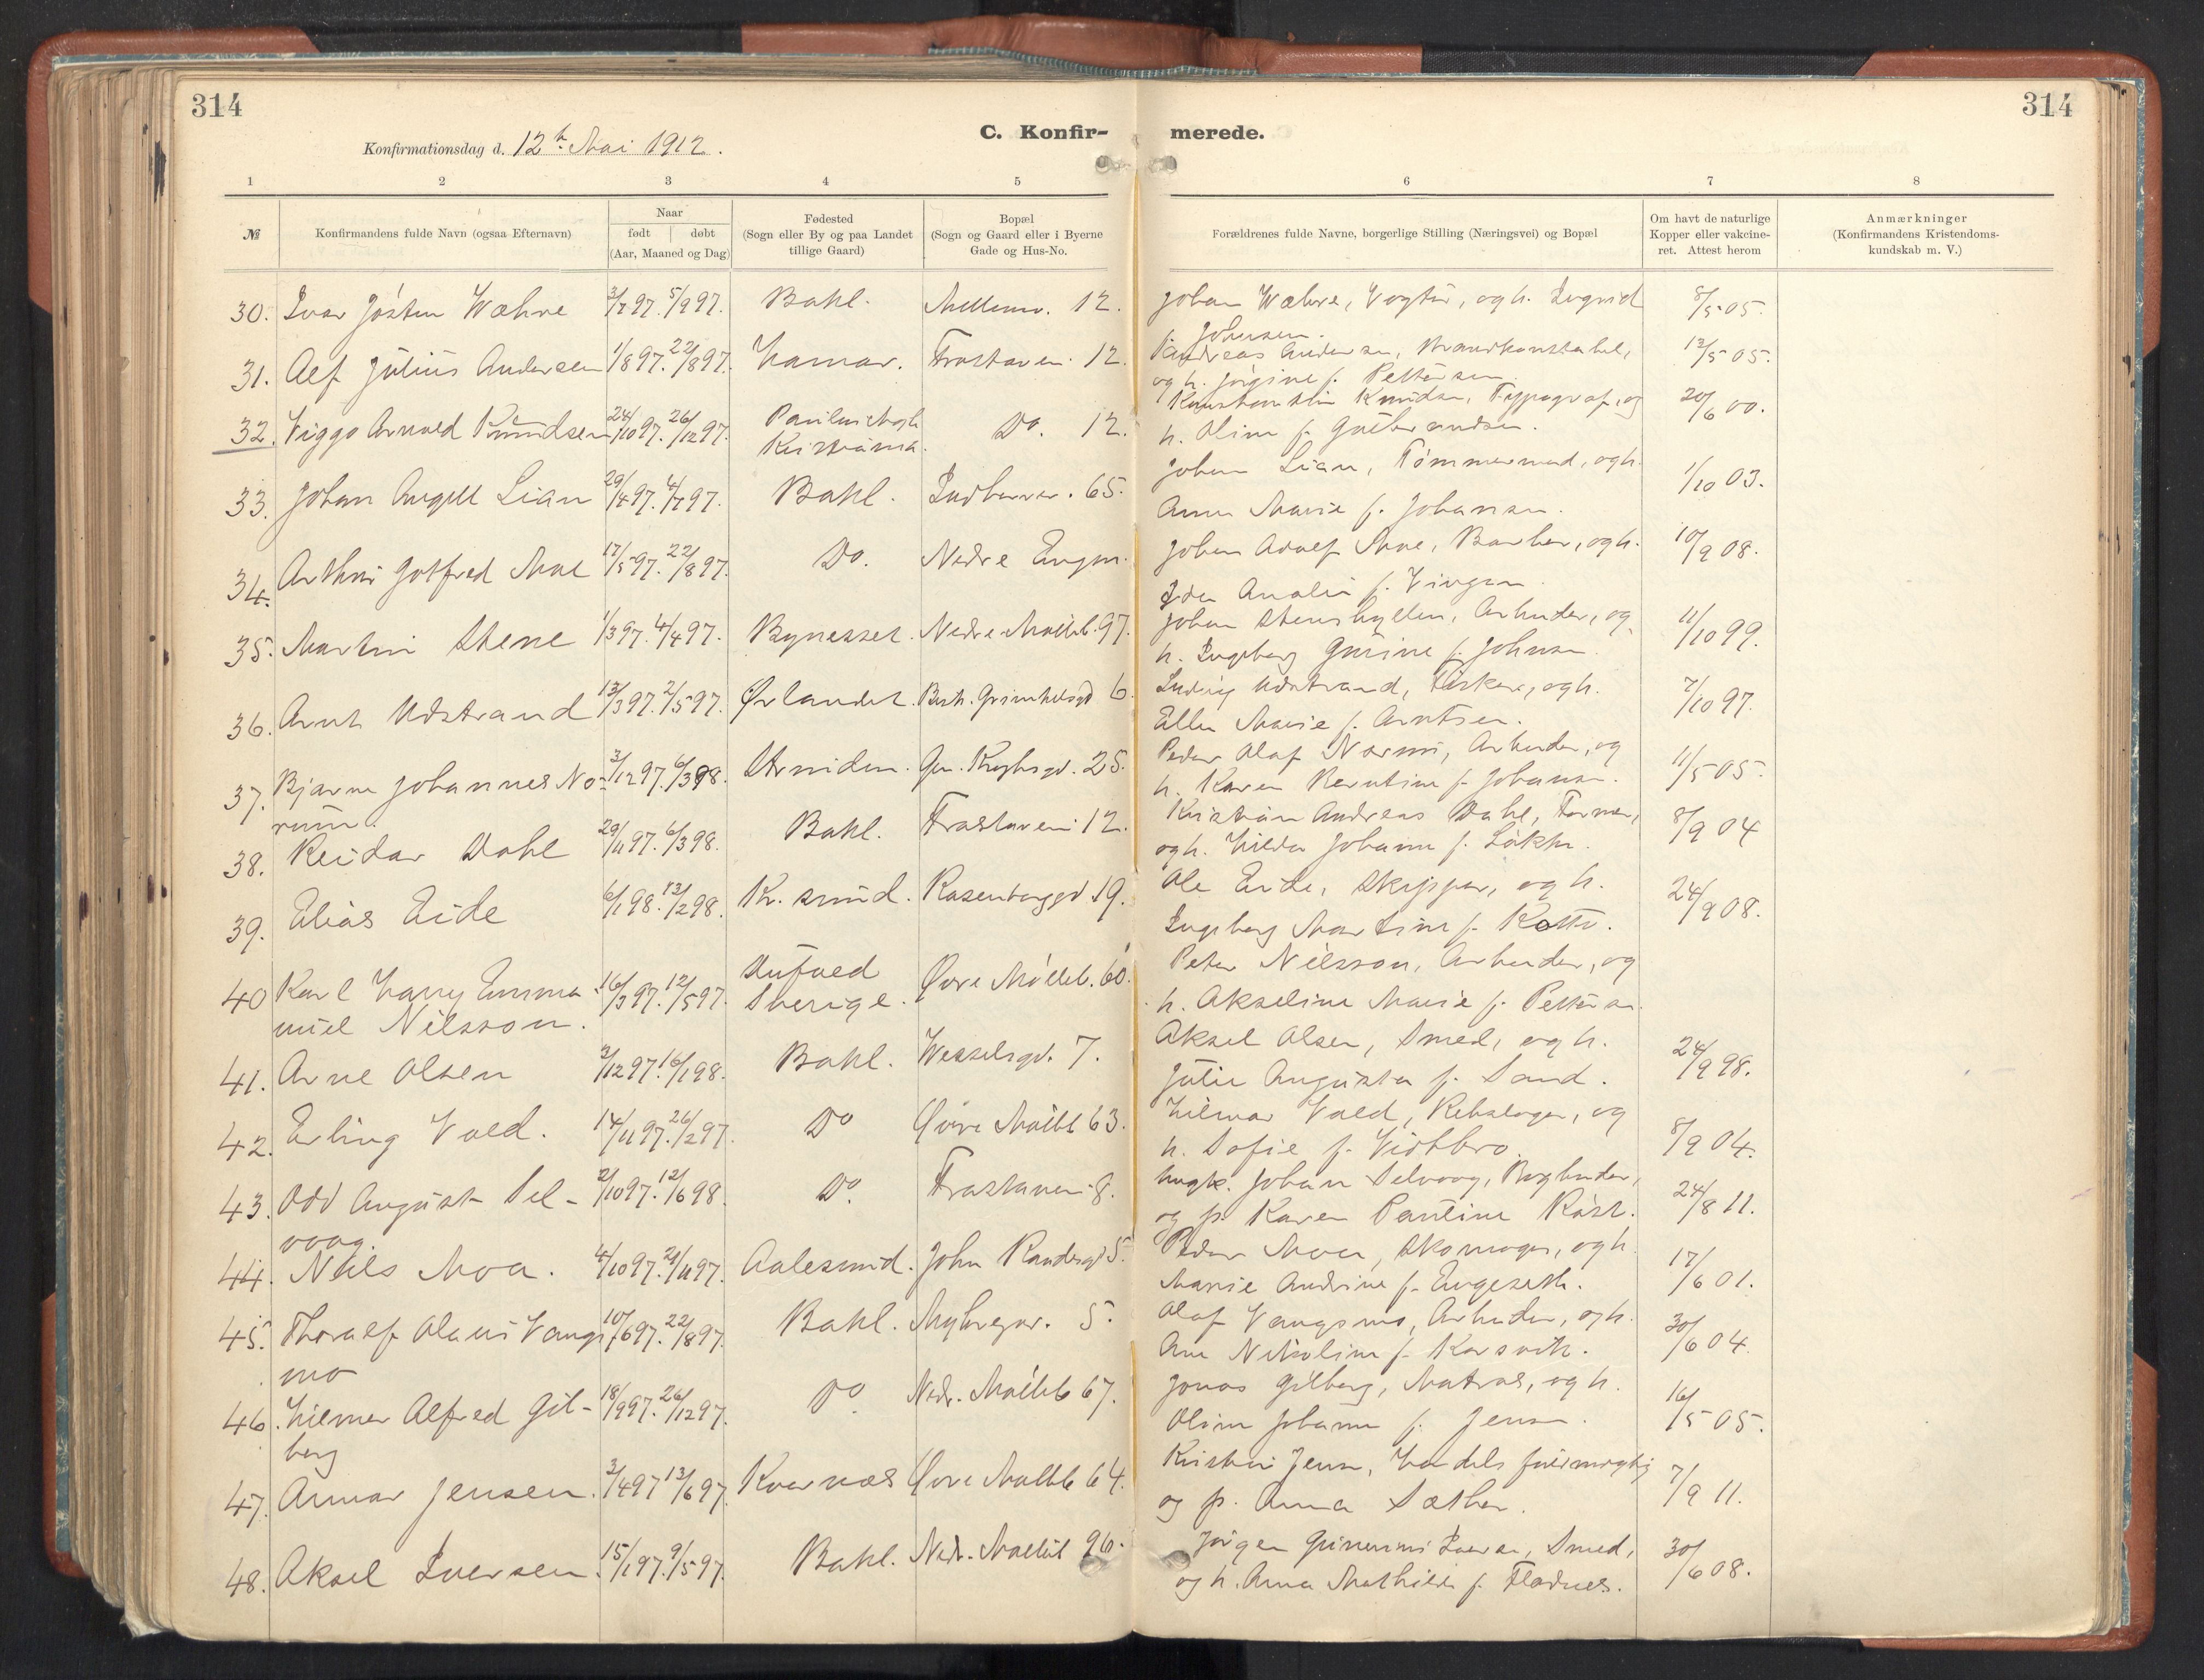 314
314
C. Konfir-
merede.
Konfirmationsdag d. 12te Mai 1912.
1 2 3 4 5 6 7 8
№
Konfirmandens fulde Navn (ogsaa Efternavn)
Naar
født døbt
(Aar, Maaned og Dag)
Fødested
(Sogn eller By og paa Landet
tillige Gaard)
Bopæl
(Sogn og Gaard eller i Byerne
Gade og Hus-No.
Forældrenes fulde Navne, borgerlige Stilling (Næringsvei) og Bopæl
Om havt de naturlige
Kopper eller vakcine-
ret. Attest herom
Anmærkninger
(Konfirmandens Kristendoms-
kundskab m. V.)
30. Ivar Jósten Wæhre 3/7 97. 5/9 97. Bakl. Mellemv. 12. Johan Wæhre, Vogtur, og h. Ingrid 8/5 05.
Johnsen.
31. Alf Julius Andersen 1/8 97. 22/8 97. Hamar. Frostaven. 12. Andreas Andersen, Strandkonstabel, 12/5 05.
og h. Jørgine f. Pettersen.
32. Viggo Arnold Knudsen 24/10 97. 26/12 97. Kristiania. Do. 12. Konstantin Knudsen, Typograf, og 20/6 00.
h. Oline f. Gulbrandsen.
33. Johan Angell Lian 29/4 97. 4/7 97. Bakl. Indherrev. 65. Johan Lian, Tømmermand, og h. 1/10 03.
Anna Marie f. Johansen.
34. Arthur Gotfred Moe 17/5 97. 22/8 97. Do. Nedre Engen. Johan Adolf Moe, Barber, og h. 10/9 08.
Ida Amalie f. Vingen.
35. Martin Stene 1/3 97. 4/4 97. Bynesset. Nedre Mølleb. 97. Johan Stenshyllen, Arbeider, og 11/10 99.
h. Ingeborg Gurine f. Johnsen.
36. Arnt Udstrand 13/3 97. 2/5 97. Ørlandet. Bersv. Grimkelsgd 6. Ludvig Udstrand, Fisker, og h. 7/10 97.
Ellen Marie f. Arntsen.
37. Bjarne Johannes No- 3/12 97. 6/3 98. Strinden. Gen. Kroghsgd. 25. Peder Olaf Norum, Arbeider, og 11/5 05.
rum. h. Karen Berntine f. Johansen.
38. Reidar Dahl 29/11 97. 6/3 98. Bakl. Frostaven. 12. Kristian Andreas Dahl, Former, 8/9 04
og h. Hilda Johanne f. Løkken.
39. Elias Eide 6/1 98. 13/2 98. Kr. sund. Rosenborggd 19. Ole Eide, Skipper, og h. 24/9 08.
Ingeborg Martine f. Kotte.
40 Karl Harry Emma- 16/3 97. 12/5 97. Sverige. Øvre Mølleb. 60. Peter Nilsson, Arbeider, og
nuel Nilsson. h. Akseline Marie f. Pettersen.
41. Arne Olsen 3/12 97. 16/1 98. Bakl. Wesselsgd. 7. Aksel Olsen, Smed, og h. 24/9 98.
Julie Augusta f. Sand.
42. Erling Vold. 14/11 97. 26/2 97. Do Øvre Møllb 63. Hilmar Vold, Rebslager, og 8/9 04.
h. Sofie f. Vistbro.
43. Odd August Sel- 2/10 97. 12/6 98. Do. Frostaven. 8. Ungk. Johan Selvaag, Bogbinder, 24/8 11.
vaag. og p. Karen Pauline Røst.
44. Nils Moa. 4/10 97. 28/11 97. Aalesund. John Randersgd 5. Peder Moa, Skomager, og h. 17/6 01.
Marie Andrine f. Engeseth.
45. Thoralf Olaus Vangs- 10/6 97. 22/8 97. Bakl. Nyhregar. 5. Olaf Vangsmo, Arbeider, og h. 30/6 04.
mo Ane Nikoline f. Korsvik.
46. Hilmar Alfred Gil- 18/9 97. 26/12 97. Do. Nedr. Møllb 67. Jonas Gilberg, Matros, og h. 16/5 05.
berg Oline Johanne f. Jensen.
47. Annar Jensen. 3/4 97 13/6 97. Kvernæs Øvre Møllb 64. Kristian Jensen, Handelsfuldmægtig 7/9 11.
og p. Anna Sæther.
48. Aksel Iversen. 15/1 97. 9/5 97. Bakl. Nedr. Møllb 96. Jørgen Iversen, Smed, 30/6 08.
og h. Anna Mathilde f. Fladnes.